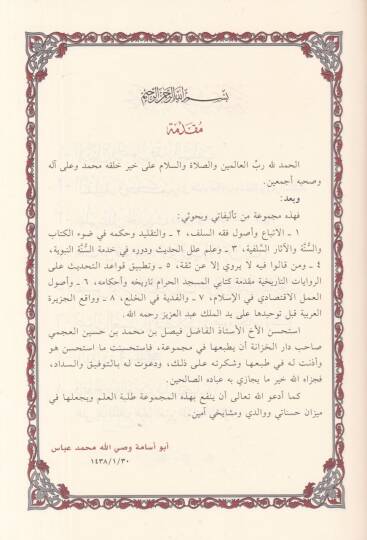 بسم الله الرحمن الرحيم
مقدمة
الحمد لله ربّ العالمين والصلاة والسلام على خير خلقه محمد وعلى آله
وصحبه أجمعين.
وبعد:
فهذه مجموعة من تأليفاتي وبحوثي:
١ ـ الاتباع وأصول فقه السلف، ٢ ـ والتقليد وحكمه في ضوء الكتاب
والسُّنَّة والآثار السَّلفية، ٣ ـ وعلم علل الحديث ودوره في خدمة السُّنَّة النبوية،
٤ ـ ومن قالوا فيه لا يروي إلا عن ثقة، ٥ ـ وتطبيق قواعد التحديث على
الروايات التاريخية مقدمة كتابي المسجد الحرام تاريخه وأحكامه، ٦ ـ وأصول
العمل الاقتصادي في الإسلام، ٧ ـ والفدية في الخلع، ٨ ـ وواقع الجزيرة
العربية قبل توحيدها على يد الملك عبد العزيز رحمه الله.
استحسن الأخ الأستاذ الفاضل فيصل بن محمد بن حسين العجمي
صاحب دار الخزانة أن يطبعها في مجموعة، فاستحسنت ما استحسن هو
وأذنت له في طبعها وشكرته على ذلك، ودعوت له بالتوفيق والسداد،
فجزاه الله خير ما يجازي به عباده الصالحين.
كما أدعو الله تعالى أن ينفع بهذه المجموعة طلبة العلم ويجعلها في
ميزان حسناتي ووالدي ومشايخي آمين.
أبو أسامة وصي الله محمد عباس
١٤٣٨/١/٣٠